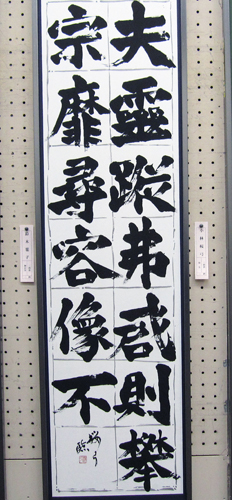 夫靈蹤弗啟則攀
宗靡尋容像不